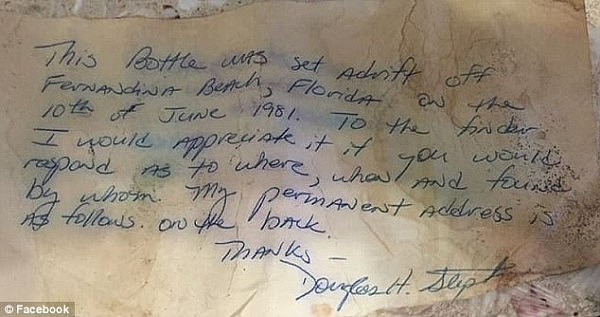 This Bottle was set Adrift off
Fernandina Beach, Florida on the
10th of June 1981. To the finder
I would appreciate it if you would
respond as to where, when and found
by whom. My permanent address is
as follows. on the back.
Thanks -
Douglas H.
© Facebook